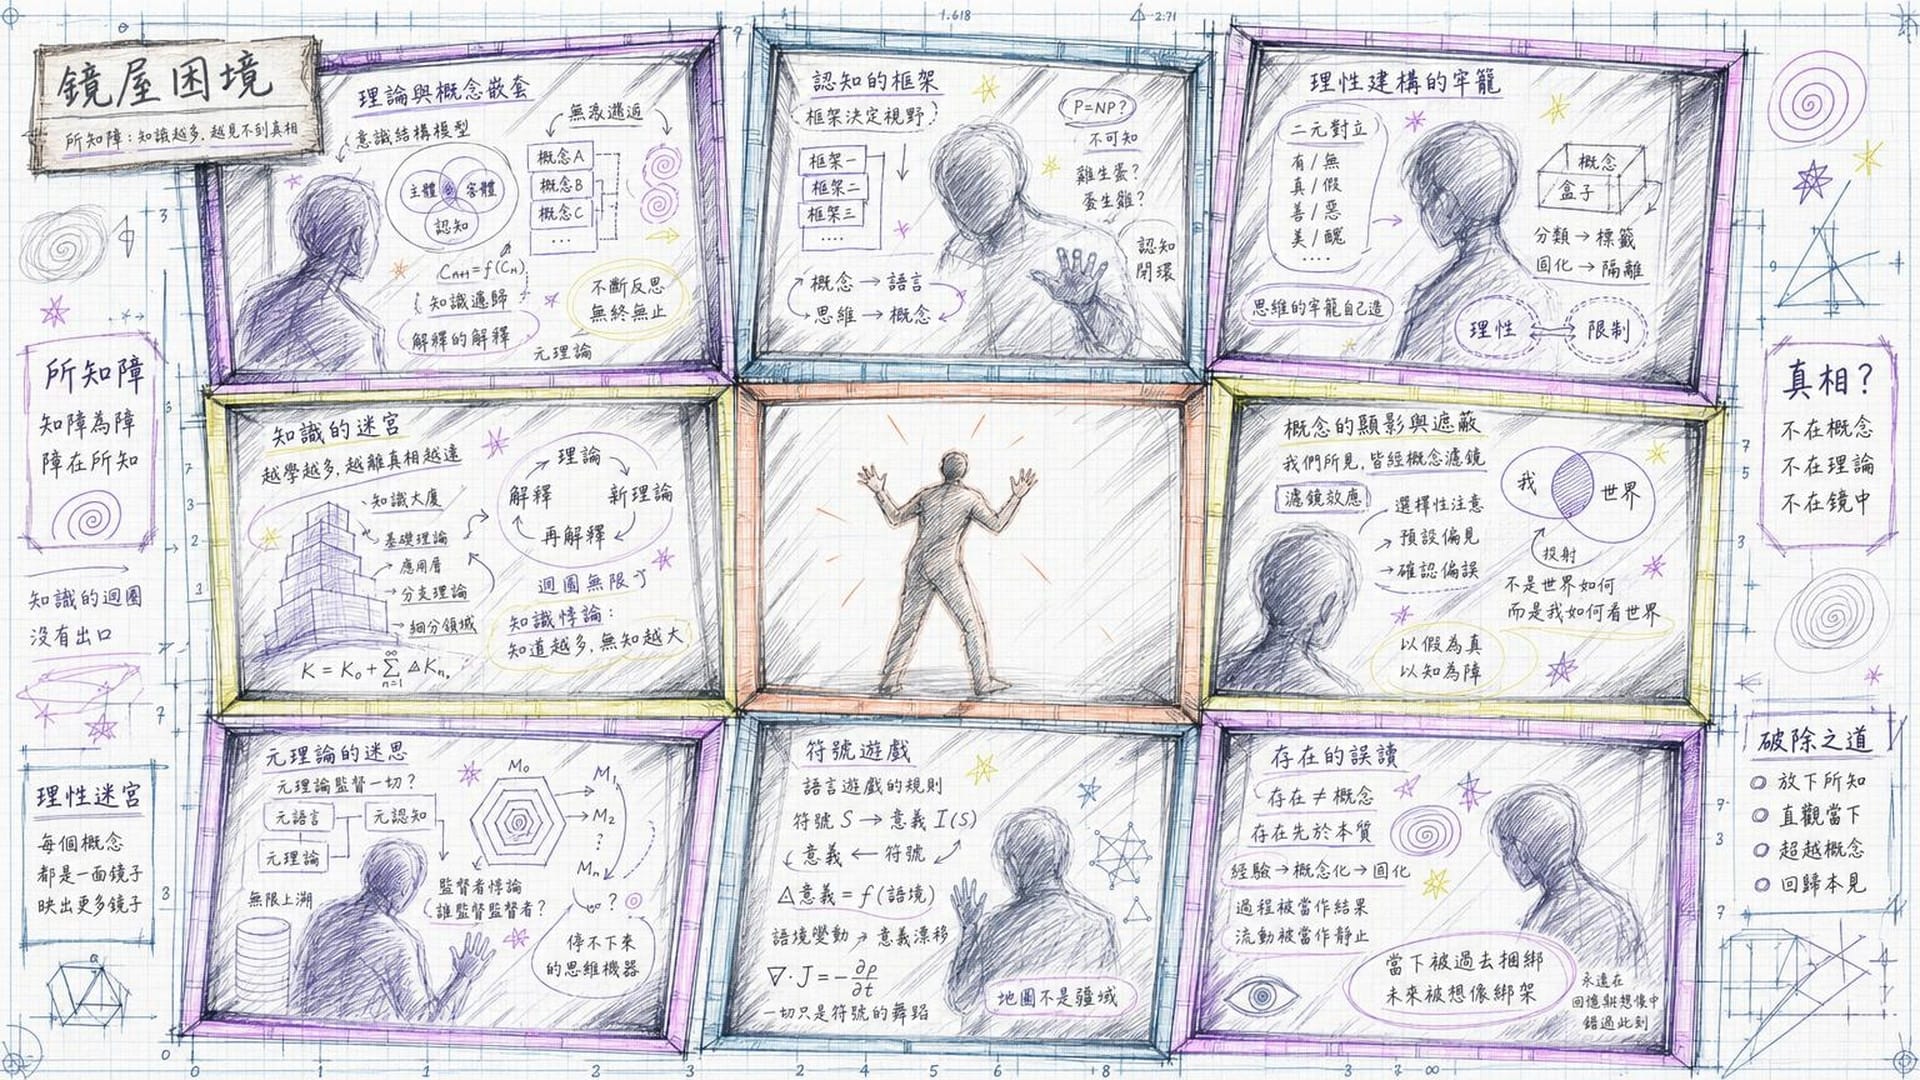 鏡屋困境
所知障：知識越多，越見不到真相
1.618
2:71
理論與概念嵌套
意識結構模型
主體
客體
認知
無限遞迴
概念A
概念B
概念C
...
Cn+1=f(Cn)
知識遞歸
解釋的解釋
不斷反思
無終無止
元理論
認知的框架
框架決定視野
框架一
框架二
框架三
....
概念→語言
思維→概念
P=NP？
不可知
雞生蛋？
蛋生雞？
認知
閉環
理性建構的牢籠
二元對立
有/無
真/假
善/惡
美/醜
....
思維的牢籠自己造
概念
盒子
分類→標籤
固化→隔離
理性
限制
所知障
知障為障
障在所知
知識的迴圈
沒有出口
知識的迷宮
越學越多，越離真相越遠
知識大廈
基礎理論
應用層
分支理論
細分領域
理論
新理論
再解釋
解釋
迴圈無限
知識悖論：
知道越多，無知越大
K = K₀ + ∞ Σ n=1 ΔKn,
概念的顯影與遮蔽
我們所見，皆經概念濾鏡
濾鏡效應
選擇性注意
預設偏見
→確認偏誤
我
世界
投射
不是世界如何
而是我如何看世界
以假為真
以知為障
真相？
不在概念
不在理論
不在鏡中
理性迷宮
每個概念
都是一面鏡子
映出更多鏡子
元理論的迷思
元理論監督一切？
元語言
元認知
元理論
無限上溯
M₀
M₁
M₂
?
Mn
?
監督者悖論
誰監督監督者？
停不下來
的思維機器
符號遊戲
語言遊戲的規則
符號 S → 意義 I(S)
意義 ← 符號
△意義 = f(語境)
語境變動 → 意義漂移
∇·J = -∂ρ/∂t
一切只是符號的舞蹈
地圖不是疆域
存在的誤讀
存在≠概念
存在先於本質
經驗→概念化→固化
過程被當作結果
流動被當作靜止
當下被過去捆綁
未來被想像綁架
永遠在
錯過此刻
破除之道
放下所知
直觀當下
超越概念
回歸本見